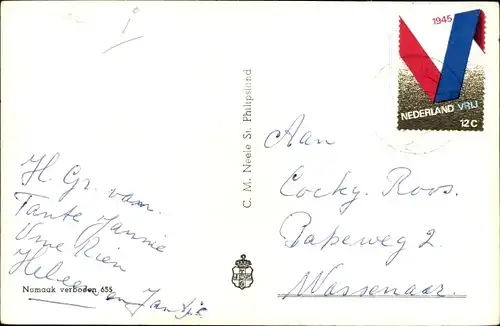 1945
NEDERLAND VRIJ
12 C
C. M. Neele St. Philipsland
Aan
Cocky Roos.
Papeweg 2
Wassenaar.
H. Gr. van.
Tante Jannie
Ome Rien
Heleen en Jan
Namaak verboden 655